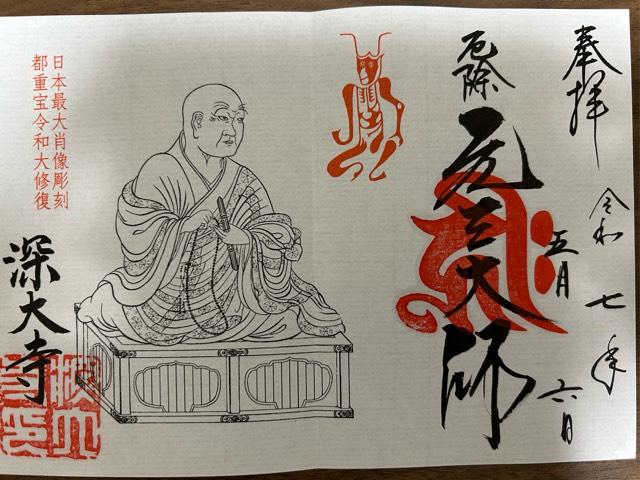 奉拝
令和七年
五月六日
厄除
元三大師
日本最大肖像彫刻
都重宝令和大修復
深大寺